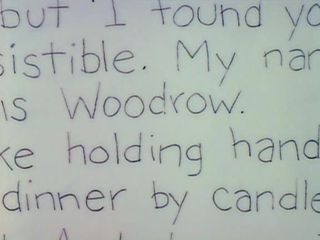 but I found yo
sistible. My nar
is Woodrow.
ke holding hand
dinner by candle